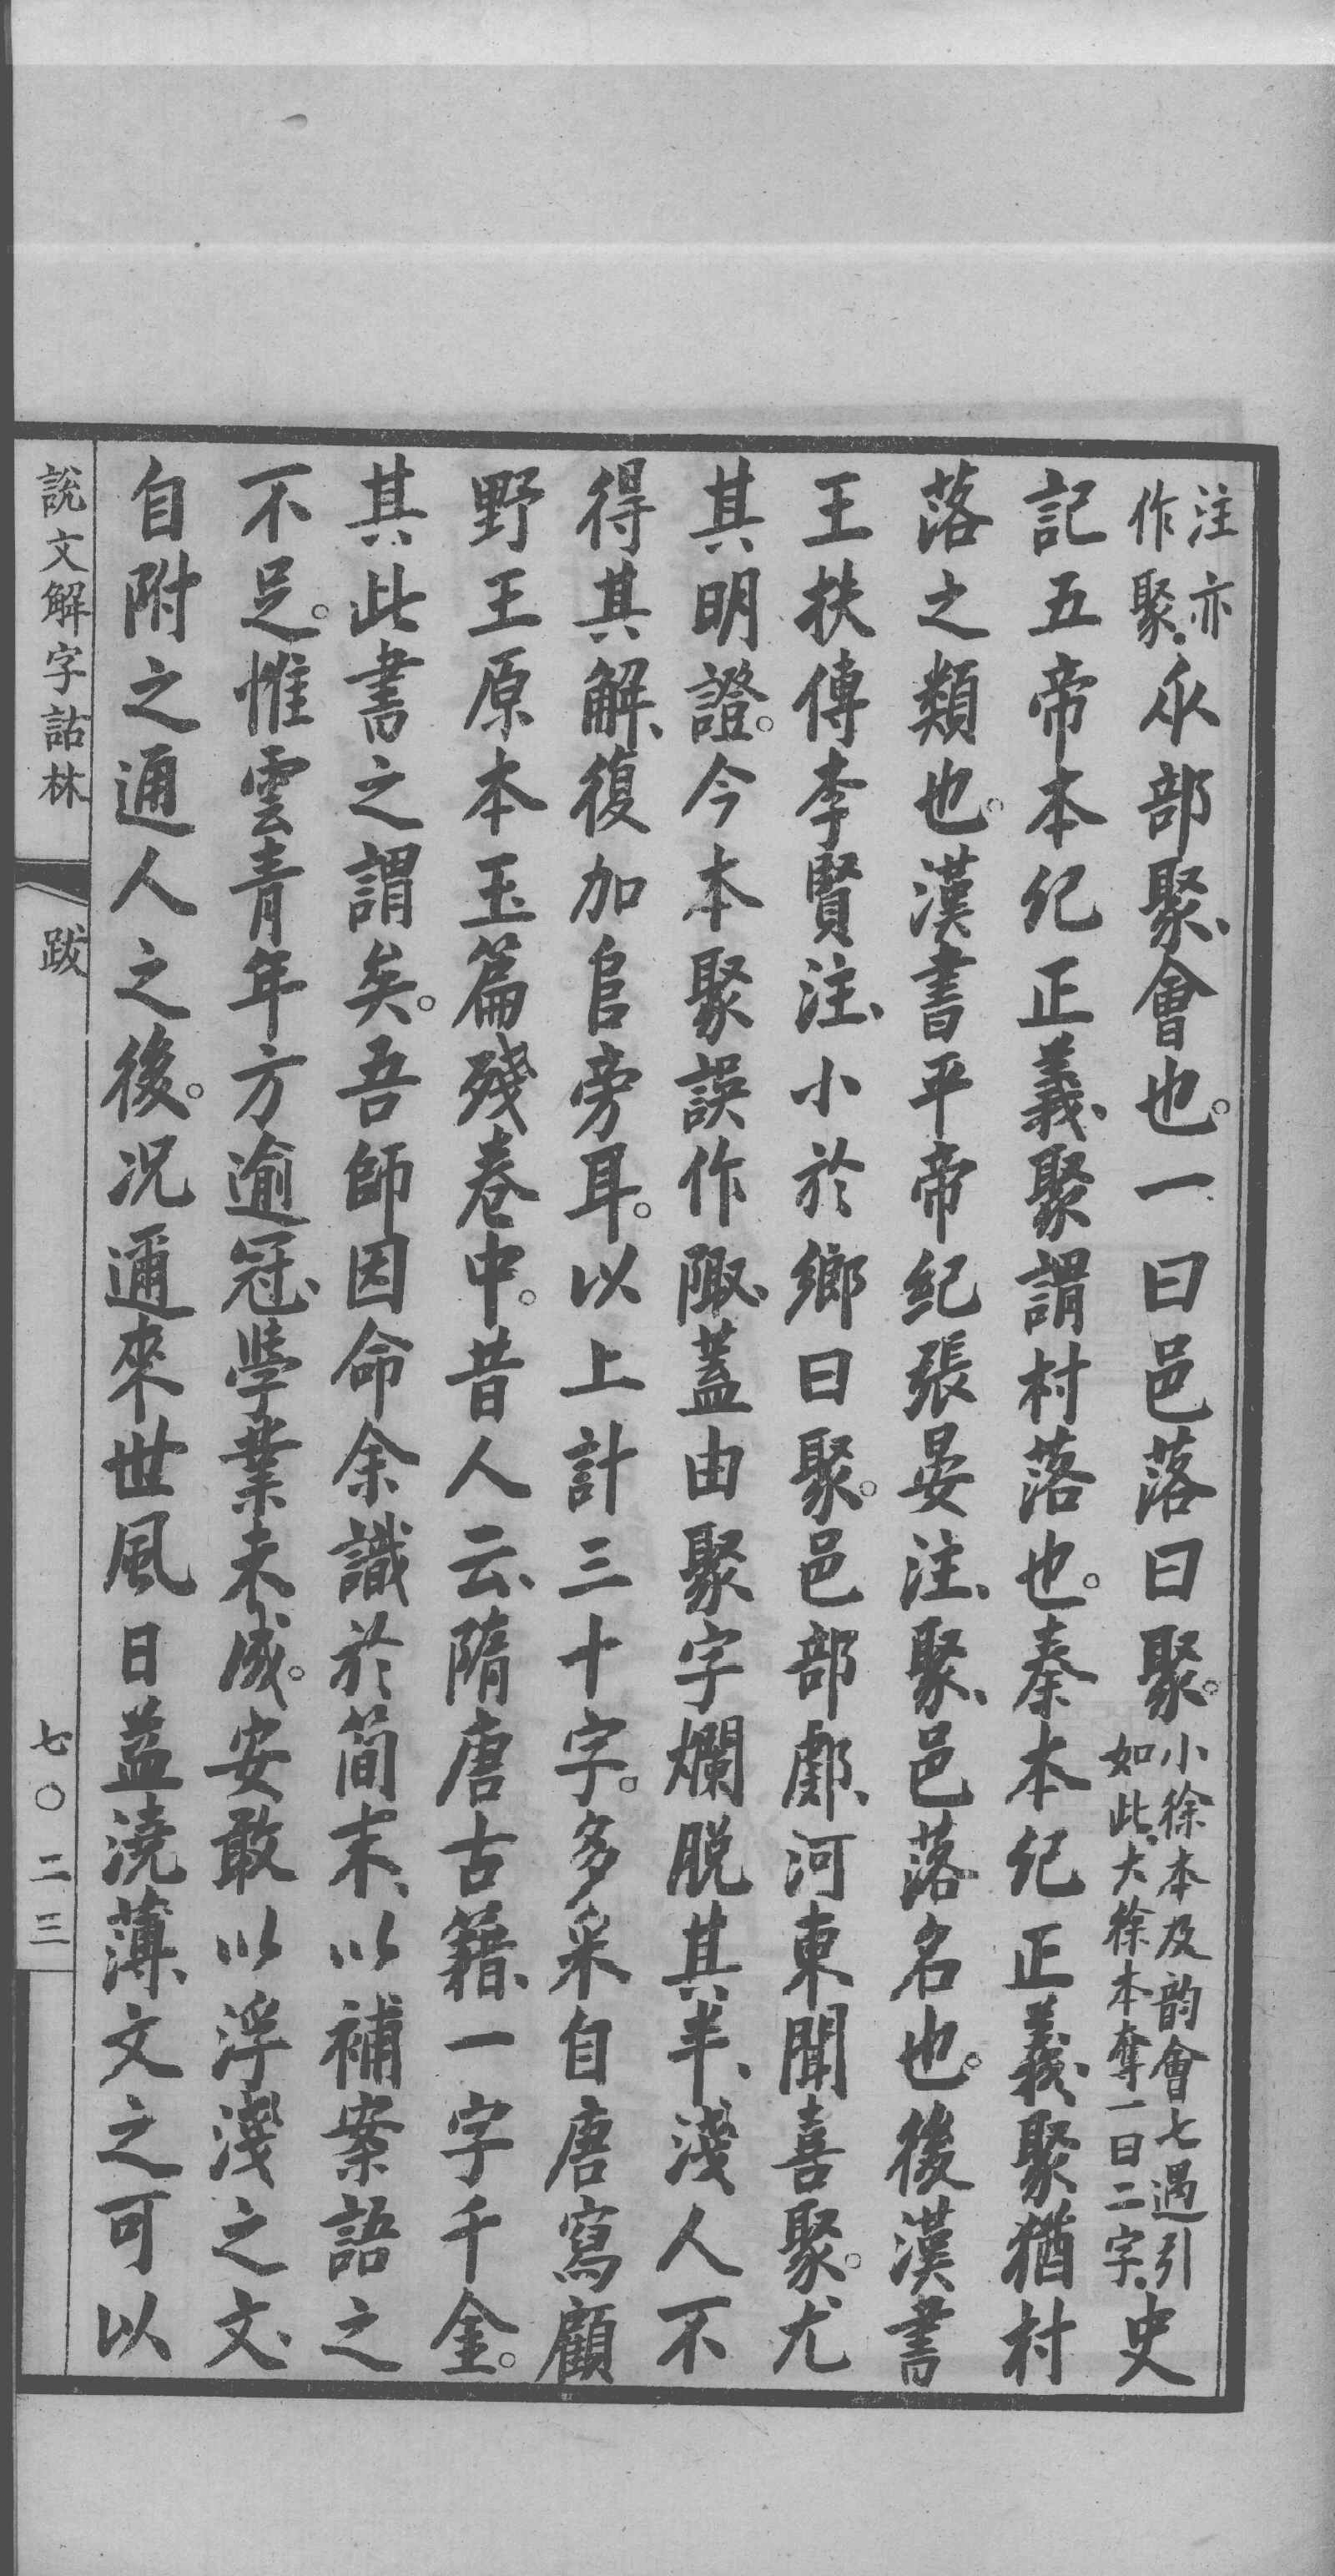 注亦作聚、㐺部聚、會也。一曰邑落曰聚。小徐本及韵會七遇引如此、大徐本奪一曰二字、史
記五帝本紀正義、聚謂村落也。秦本紀正義、聚猶村
落之類也。漢書平帝紀張晏注、聚、邑落名也。後漢書
王扶傳李賢注、小於鄉曰聚。邑部䣜、河東聞喜聚。尤
其明證。今本聚誤作陬、蓋由聚字爛脫其半、淺人不
得其解、復加𠂤旁耳。以上計三十字。多采自唐寫顧
野王原本玉篇殘卷中。昔人云、隋唐古籍、一字千金。
其此書之謂矣。吾師因命余識於簡末、以補案語之
不足。惟雲青年方逾冠、學業未成。安敢以浮淺之文、
自附之通人之後。况邇來世風日益澆薄、文之可以
說文解字詁林 跋 七〇二三